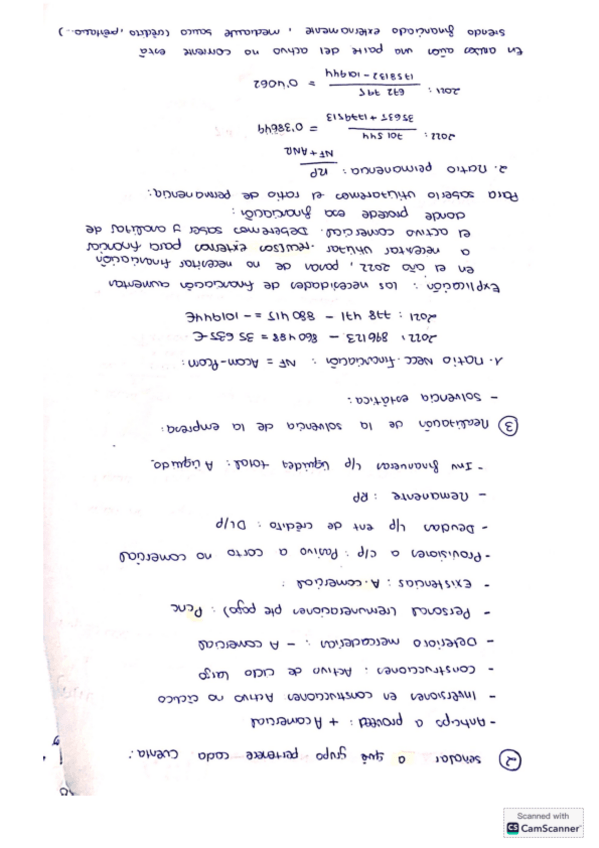 ② señalar a qué grupo pertenece cada cuenta:
- Anticipo a proveed : + A comercial
- Inversiones en construcciones Activo no cíclico
- Construcciones : Activo de ciclo largo
- Deterioro mercaderías : - A comercial
- Personal (remuneraciones pte pago) : Pcnc
- Existencias : A. comercial :
- Provisiones a c/p : Pasivo a corto no comercial
- Deudas l/p ent de crédito : DL/p
- Remanente : RP
- Inv financieras c/p liquidez total : A líquido.
③ Realización de la solvencia de la empresa :
- Solvencia estática :
1. Ratio Nec. financiación : NF = Acom - Pcom :
2022 : 896123 - 860488 = 35635 €
2021 : 778 471 - 880 415 = - 101944 €
Explicación : las necesidades de financiación aumentan
en el año 2022, pasan de no necesitar financiación
a necesitar utilizar recursos externos para financiar
el activo comercial. Deberemos saber y analizar de
donde procede esa financiación :
Para saberlo utilizaremos el ratio de permanencia :
2. Ratio permanencia : RP / NF + ANC
2022 : 701 544 / 35635 + 1779513 = 0'38649
2021 : 672 795 / 1758132 - 101944 = 0'4062
En ambos años una parte del activo no corriente está
siendo financiado externamente, mediante banco (crédito, préstamo...)
Scanned with
CS CamScanner